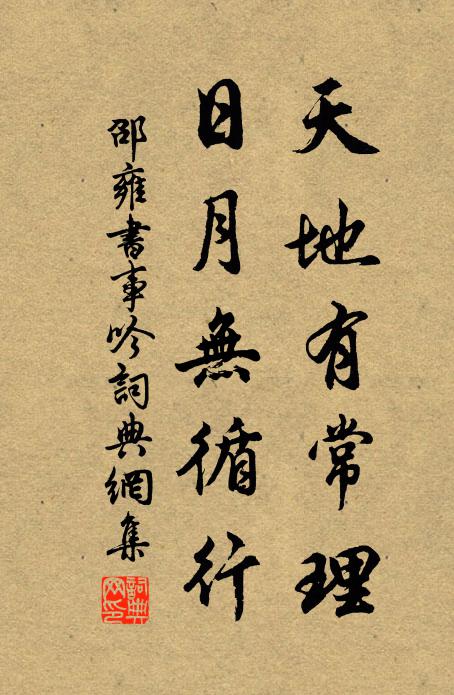 天地有常理
日月無循行
邵雍書事吟詞典網集
詞典網印